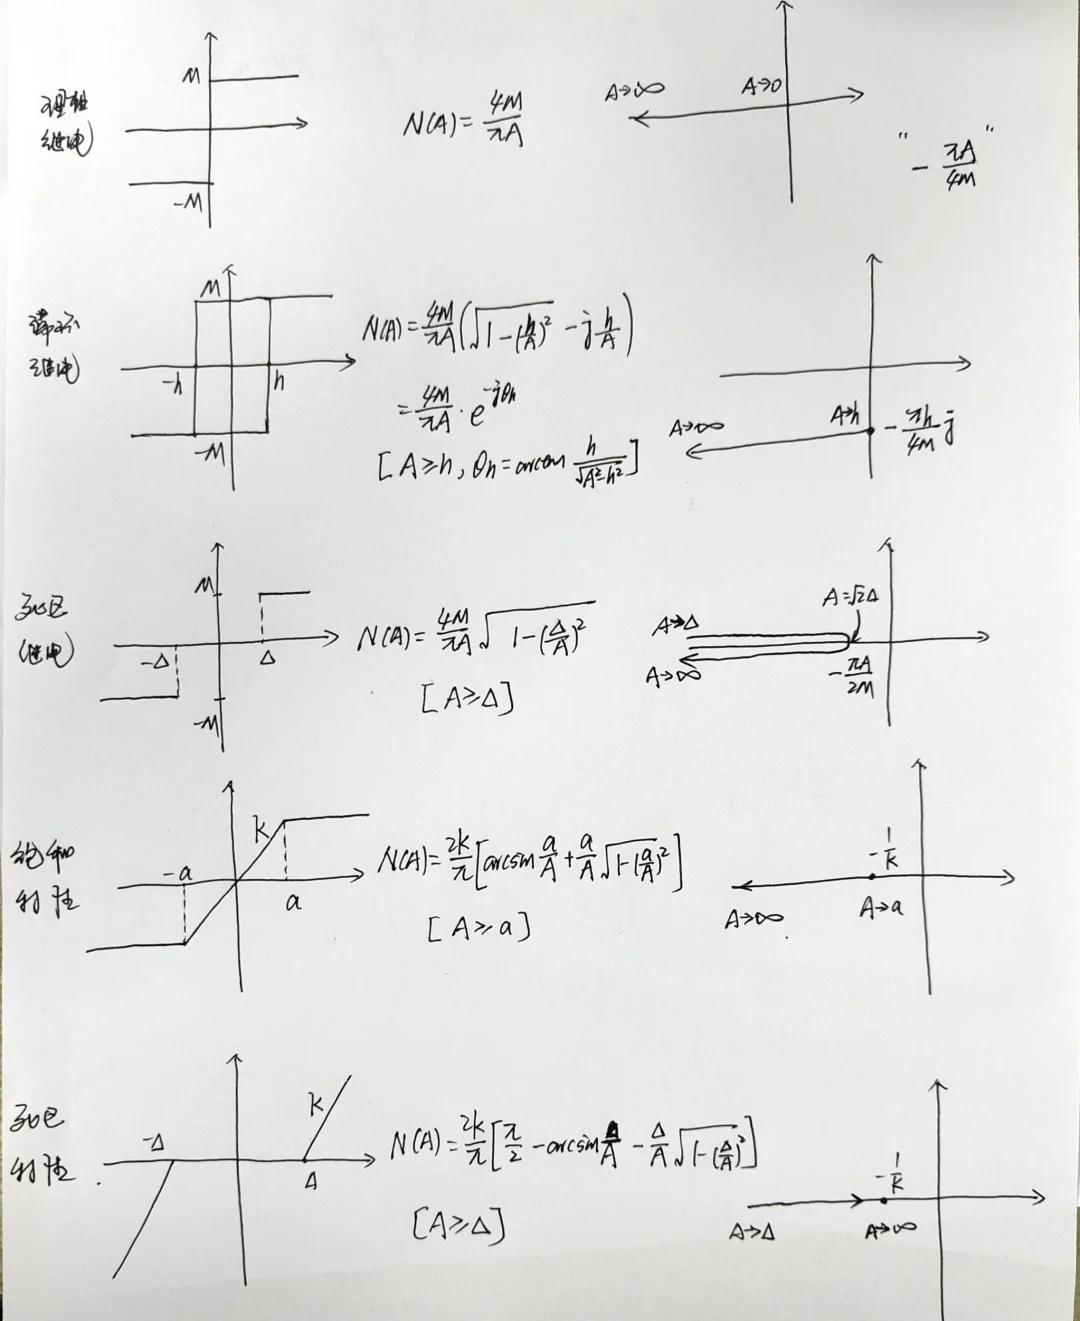 理想
继电
M
-M
N(A)=4M/πA
A→∞
A→0
"-πA/4M"
滞环
继电
M
-h
h
-M
N(A)=4M/πA(√1-(h/A)²-jh/A)
=4M/πA·e^-jθh
[A≥h, θh=arctan h/√A²-h²]
A→∞
A→h
-πh/4M j
死区
继电
M
-Δ
Δ
-M
N(A)=4M/πA √1-(Δ/A)²
[A≥Δ]
A→Δ
A→∞
A=√2Δ
-πΔ/2M
饱和
特性
K
-a
a
N(A)=2k/π[arcsin a/A+a/A√1-(a/A)²]
[A≥a]
-1/K
A→∞
A→a
死区
特性
K
-Δ
Δ
N(A)=2k/π[π/2-arcsin Δ/A-Δ/A√1-(Δ/A)²]
[A≥Δ]
-1/K
A→Δ
A→∞